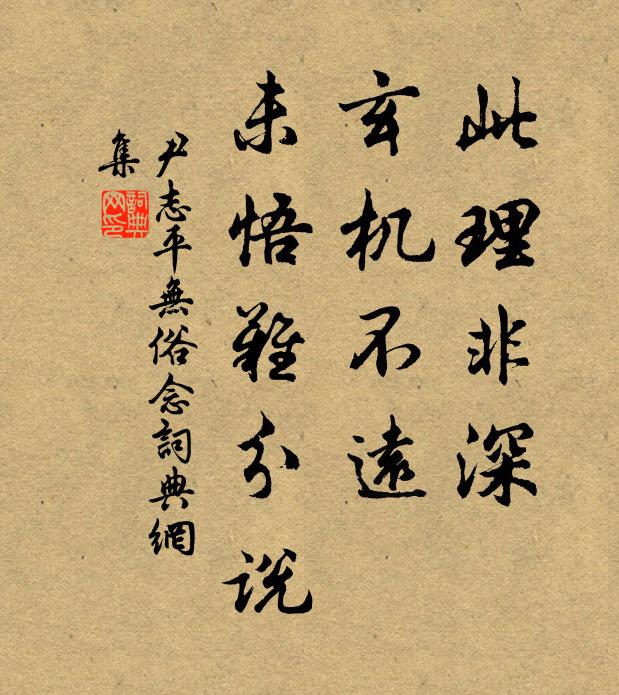 此理非深
玄机不遠
未悟難分说
尹志平無俗念詞典網
集
詞典
网印